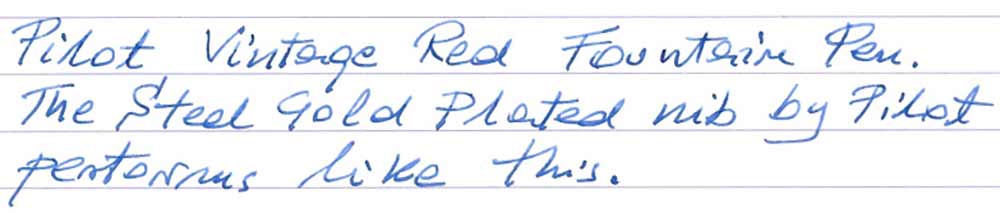 Pilot Vintage Red Fountain Pen.
The Steel Gold Plated nib by Pilot
performs like this.